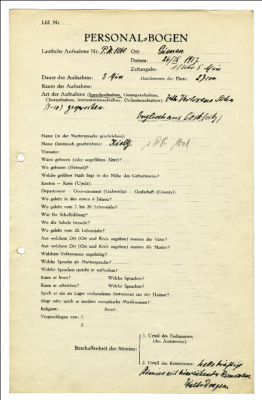 Lfd. Nr.
PERSONAL-BOGEN
Lautliche Aufnahme Nr.: P.K. 1060 Ort: Giessen
Datum: 24/IX 1917
Zeitangabe: 5 Min
Dauer der Aufnahme: 3 Min Durchmesser der Platte: 27 cm
Raum der Aufnahme:
Art der Aufnahme (Sprechaufnahme, Gesangsaufnahme,
Choraufnahme, Instrumentenaufnahme, Orchesteraufnahme):
(1-10) gesprochen.
Name (in der Muttersprache geschrieben):
Name (lateinisch geschrieben):
Vorname:
Wann geboren (oder ungefähres Alter)?
Wo geboren (Heimat)?
Welche größere Stadt liegt in der Nähe des Geburtsortes?
Kanton — Kreis (Ujezd):
Departement — Gouvernement (Gubernija) — Grafschaft (County):
Wo gelebt in den ersten 6 Jahren?
Wo gelebt vom 7. bis 20. Lebensjahr?
Was für Schulbildung?
Wo die Schule besucht?
Wo gelebt vom 20. Lebensjahr?
Aus welchem Ort (Ort und Kreis angeben) stammt der Vater?
Aus welchem Ort (Ort und Kreis angeben) stammt die Mutter?
Welchem Volksstamm angehörig?
Welche Sprache als Muttersprache?
Welche Sprachen spricht er außerdem?
Kann er lesen? Welche Sprachen?
Kann er schreiben? Welche Sprachen?
Spielt er ein im Lager vorhandenes Instrument aus der Heimat?
Singt oder spielt er modern europäische Musikweisen?
Religion: Beruf:
Vorgeschlagen von: 1.
2.
Beschaffenheit der Stimme:
1. Urteil des Fachmannes
(des Assistenten):
2. Urteil des Kommissars: